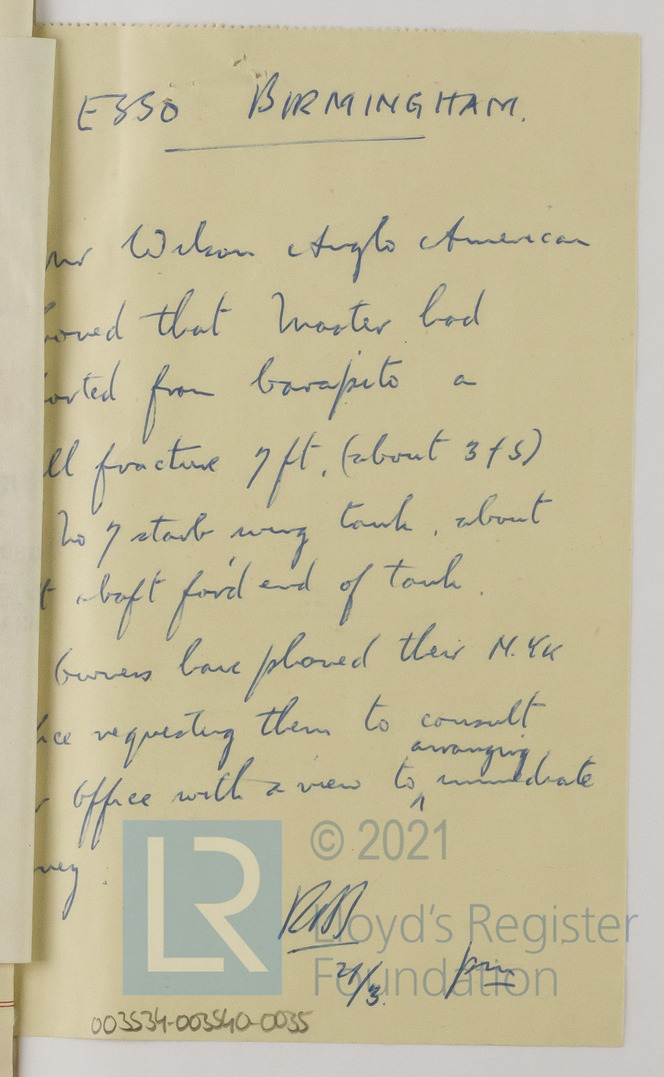 ESSO BIRMINGHAM.
Mr Wilson Anglo American
that Master had
from Caripito a
fracture 7 ft. (about 3 f S)
No 7 starb wing tank, about
abaft for'd end of tank.
Owners have phoned their N.Yk
requesting them to consult
arranging
office with a view to ^ immediate
© 2021
LR
Lloyd's Register
Foundation
21/3. pm
003534-003540-0035